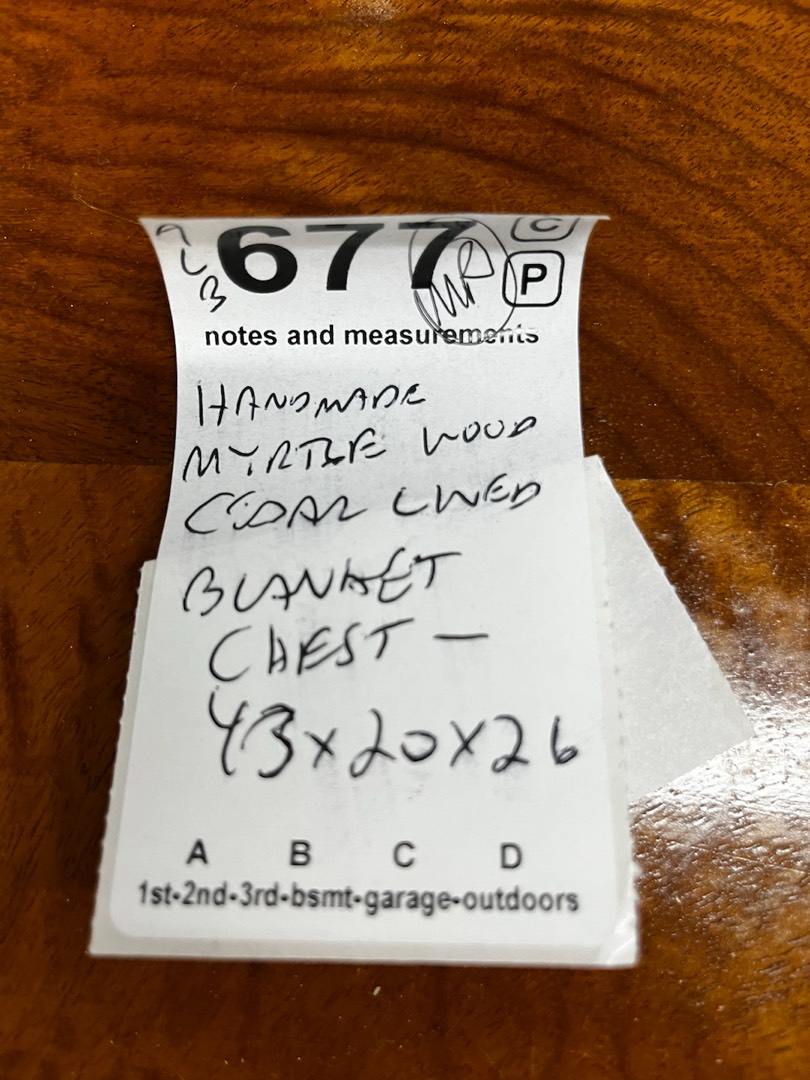 ALB 677 MR C
P
notes and measurements
HANDMADE
MYRTLE WOOD
CEDAR LINED
BLANKET
CHEST —
43x20x26
A B C D
1st-2nd-3rd-bsmt-garage-outdoors